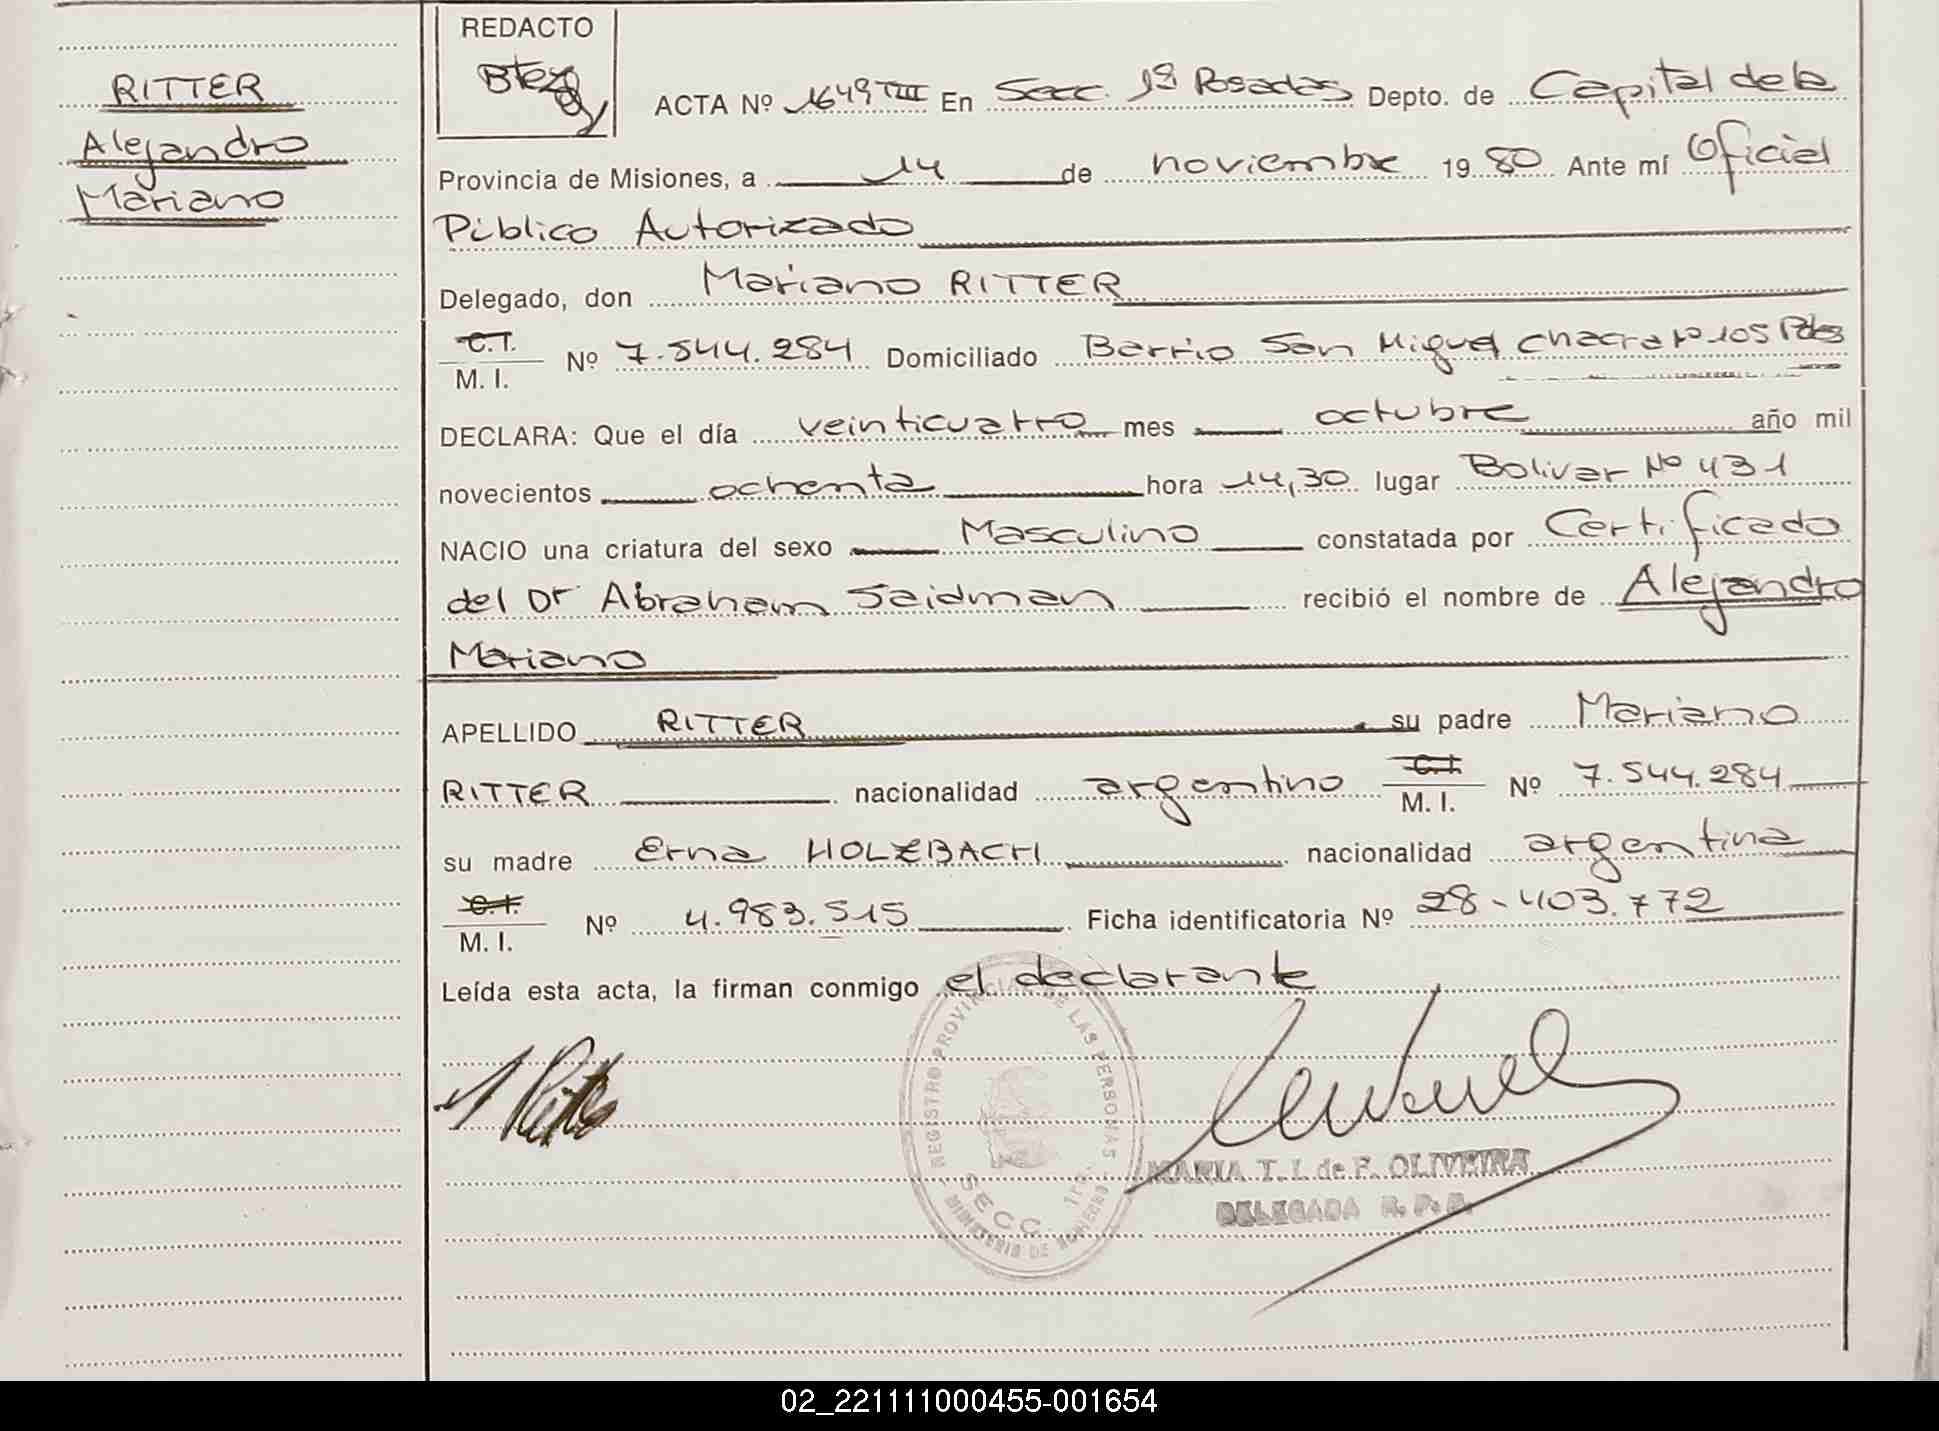 REDACTO
RITTER
Alejandro
Mariano
ACTA Nº 1649 TIII En Secc. 1ª Posadas Depto. de Capital de la
Provincia de Misiones, a 14 de noviembre 1980 Ante mí Oficial
Público Autorizado
Delegado, don Mariano RITTER
C.I.
M. I. Nº 7.544.284 Domiciliado Barrio San Miguel chacra Nº 105 Pdas
DECLARA: Que el día veinticuatro mes octubre año mil
novecientos ochenta hora 14,30 lugar Bolivar Nº 431
NACIO una criatura del sexo Masculino constatada por Certificado
del Dr Abraham Saidman recibió el nombre de Alejandro
Mariano
APELLIDO RITTER su padre Mariano
RITTER nacionalidad argentino C.I. M. I. Nº 7.544.284
su madre Erna HOLZBACH nacionalidad argentina
C.I.
M. I. Nº 4.983.515 Ficha identificatoria Nº 28-403.772
Leída esta acta, la firman conmigo el declarante
REGISTRO PROVINCIAL DE LAS PERSONAS
SECC. 1ra.
MINISTERIO DE GOBIERNO
MARIA T. I. de F. OLIVEIRA
DELEGADA R. P. P.
02_221111000455-001654